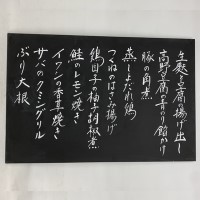 生麩と豆腐の揚げ出し
高野豆腐の青のり餡かけ
豚の角煮
蒸しよだれ鶏
つくねのはさみ揚げ
鶏団子の柚子胡椒煮
鮭のレモン焼き
イワシの香草焼き
サバのクミングリル
ぶり大根